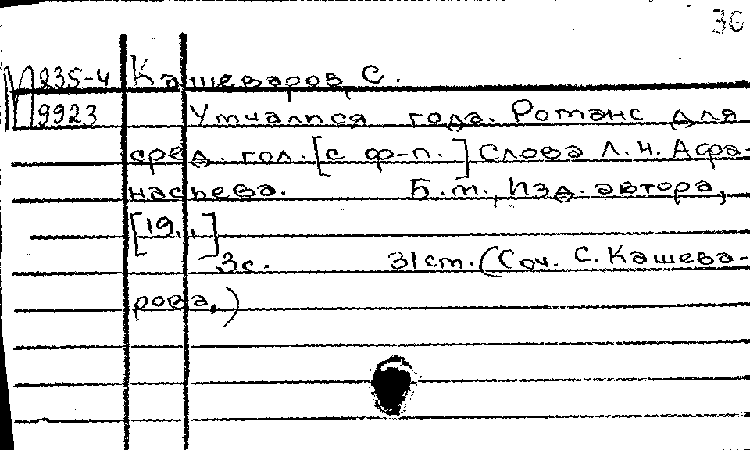 30
М 235-4 Кашеваров, С.
9923 Умчалися года. Романс для
сред. гол. [с ф-п.] Слова Л.Н. Афа-
насьева. Б.м., Изд. автора,
[19..]
3с. 31 см. (Соч. С. Кашева-
рова.)